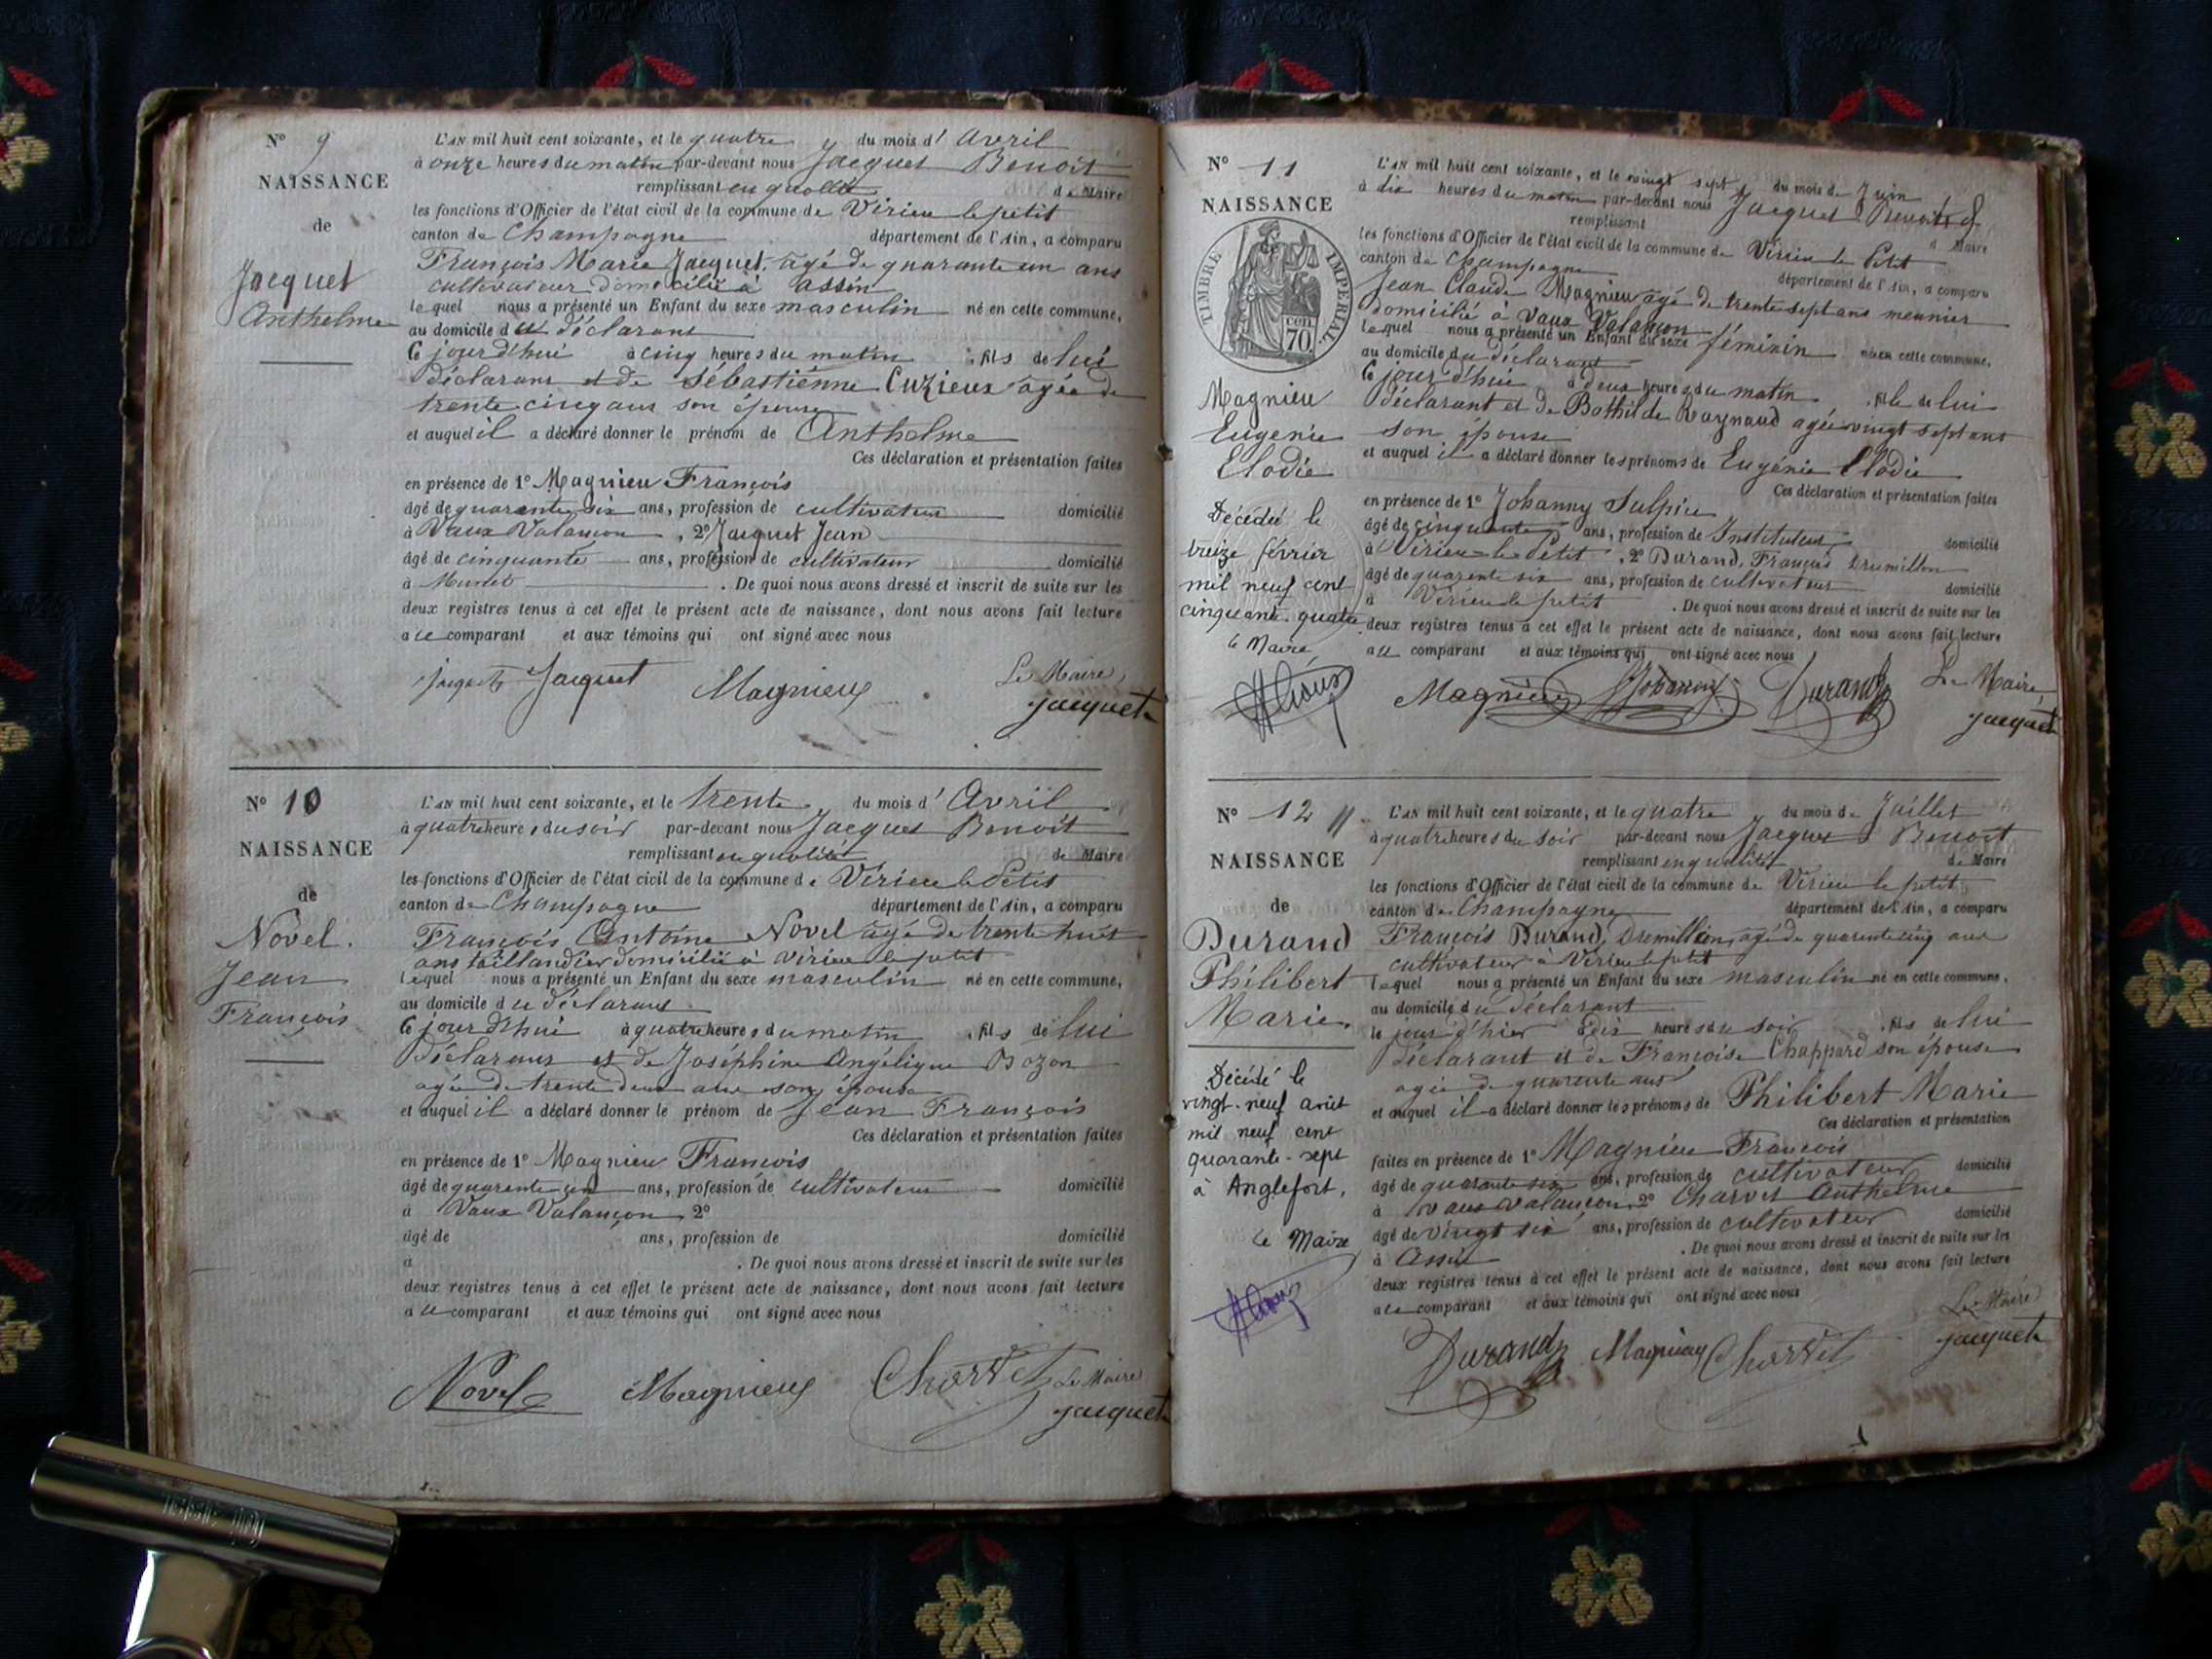 N° 9
NAISSANCE
de
Jacquet
Anthelme
L'AN mil huit cent soixante, et le quatre du mois d' Avril
à onze heures du matin par-devant nous Jacquet Benoit
remplissant en qualité de Maire
les fonctions d'Officier de l'état civil de la commune de Virieu le petit
canton de Champagne département de l'Ain, a comparu
François Marie Jacquet, agé de quarante un ans
cultivateur domicilié à Assin
lequel nous a présenté un Enfant du sexe masculin né en cette commune,
au domicile du déclarant
Ce jourd'hui à cinq heures du matin , fils de lui
déclarant et de Sébastiénne Cuzieux agée de
trente cinq ans son épouse
et auquel il a déclaré donner le prénom de Anthelme
Ces déclaration et présentation faites
en présence de 1° Magnieu François
âgé de quarante six ans, profession de cultivateur domicilié
à Vaux Valançon , 2° Jacquet Jean
âgé de cinquante ans, profession de cultivateur domicilié
à . De quoi nous avons dressé et inscrit de suite sur les
deux registres tenus à cet effet le présent acte de naissance, dont nous avons fait lecture
au comparant et aux témoins qui ont signé avec nous
jacquet Jacquet Magnieu Le Maire,
jacquet
N° 10
NAISSANCE
de
Novel.
Jean
François
L'AN mil huit cent soixante, et le trente du mois d' Avril
à quatre heures du soir par-devant nous Jacquet Benoit
remplissant en qualité de Maire
les fonctions d'Officier de l'état civil de la commune de Virieu le Petit
canton de Champagne département de l'Ain, a comparu
François Antoine Novel agé de trente huit
ans taillandier domicilié à Virieu le petit
lequel nous a présenté un Enfant du sexe masculin né en cette commune,
au domicile du déclarant
Ce jourd'hui à quatre heures du matin , fils de lui
déclarant et de Joséphine Angélique Bozon
agée de trente deux ans son épouse
et auquel il a déclaré donner le prénom de Jean François
Ces déclaration et présentation faites
en présence de 1° Magnieu François
âgé de quarante ans, profession de cultivateur domicilié
à Vaux Valançon , 2°
âgé de ans, profession de domicilié
à . De quoi nous avons dressé et inscrit de suite sur les
deux registres tenus à cet effet le présent acte de naissance, dont nous avons fait lecture
au comparant et aux témoins qui ont signé avec nous
Novel Magnieu Charvet Le Maire
jacquet
N° 11
NAISSANCE
TIMBRE IMPERIAL
cen. 70
Magnieu
Eugenie
Elodie
Décédée le
treize février
mil neuf cent
cinquante quatre
le Maire
L'AN mil huit cent soixante, et le vingt sept du mois de Juin
à dix heures du matin par-devant nous Jacquet Benoit
remplissant d Maire
les fonctions d'Officier de l'état civil de la commune de Virieu le Petit
canton de Champagne département de l'Ain, a comparu
Jean Claude Magnieu agé de trente sept ans meunier
domicilié à Vaux Valançon
lequel nous a présenté un Enfant du sexe féminin née en cette commune,
au domicile du déclarant
Ce jourd'hui à deux heures du matin , fille de lui
déclarant et de Bathilde Raynaud agée vingt sept ans
son épouse
et auquel il a déclaré donner les prénoms de Eugénie Elodie
Ces déclaration et présentation faites
en présence de 1° Johanny Sulpice
âgé de cinquante ans, profession de Instituteur domicilié
à Virieu-le-Petit , 2° Durand, François Dremillon
âgé de quarente six ans, profession de cultivateur domicilié
à Virieu le petit . De quoi nous avons dressé et inscrit de suite sur les
deux registres tenus à cet effet le présent acte de naissance, dont nous avons fait lecture
au comparant et aux témoins qui ont signé avec nous
Magnieu Johanny Durand Le Maire,
jacquet
N° 12
NAISSANCE
de
Durand
Philibert
Marie,
Décédé le
vingt-neuf août
mil neuf cent
quarante-sept
à Anglefort,
le Maire
L'AN mil huit cent soixante, et le quatre du mois de Juillet
à quatre heures du soir par-devant nous Jacquet Benoit
remplissant en qualité de Maire
les fonctions d'Officier de l'état civil de la commune de Virieu le petit
canton de Champagne département de l'Ain, a comparu
François Durand, Dremillon, agé de quarente cinq ans
cultivateur à Virieu le petit
lequel nous a présenté un Enfant du sexe masculin né en cette commune,
au domicile du déclarant
le jour d'hier à dix heures du soir , fils de lui
déclarant et de Françoise Chappard son épouse
agée de quarente ans
et auquel il a déclaré donner les prénoms de Philibert Marie
Ces déclaration et présentation
faites en présence de 1° Magnieu François
âgé de quarante six ans, profession de cultivateur domicilié
à Vaux Valançon 2° Charvet Anthelme
âgé de vingt six ans, profession de cultivateur domicilié
à Assin . De quoi nous avons dressé et inscrit de suite sur les
deux registres tenus à cet effet le présent acte de naissance, dont nous avons fait lecture
au comparant et aux témoins qui ont signé avec nous
Durand Magnieu Charvet Le Maire
jacquet